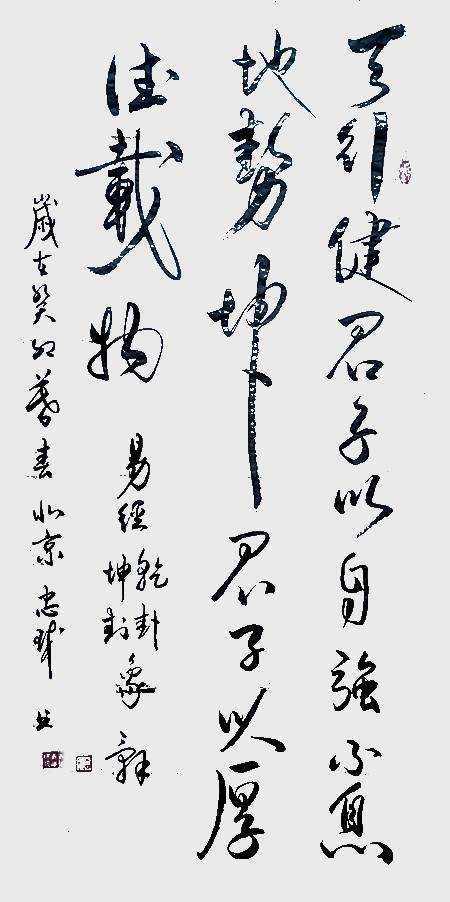 天行健君子以自強不息
地勢坤君子以厚
德載物
易經乾卦坤卦象辭
歲在癸卯暮春北京忠群書